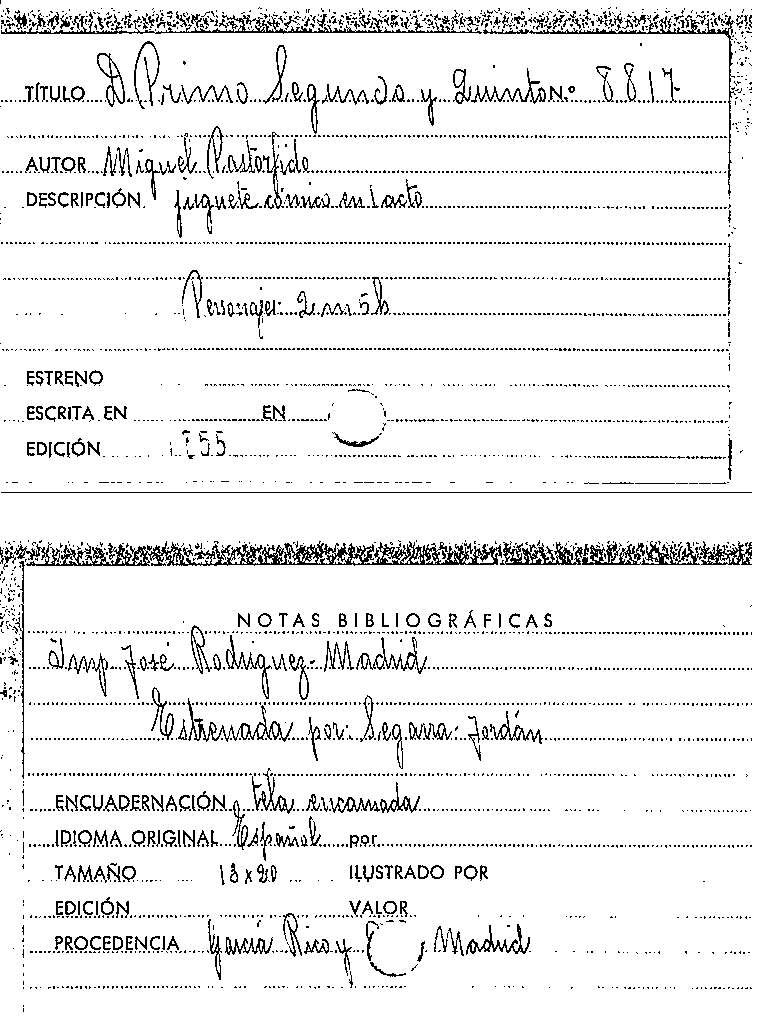 TÍTULO D. Primo Segundo y Quinto N.º 8817
AUTOR Miguel Pastorfido
DESCRIPCIÓN juguete cómico en 1 acto
Personajes: 2 m 5 h
ESTRENO
ESCRITA EN EN
EDICIÓN
NOTAS BIBLIOGRÁFICAS
Imp José Rodriguez-Madrid
Estrenada por: Segarra-Jordán
ENCUADERNACIÓN tela encarnada
IDIOMA ORIGINAL Español por
TAMAÑO 13x20 ILUSTRADO POR
EDICIÓN VALOR
PROCEDENCIA García Rico y Madrid